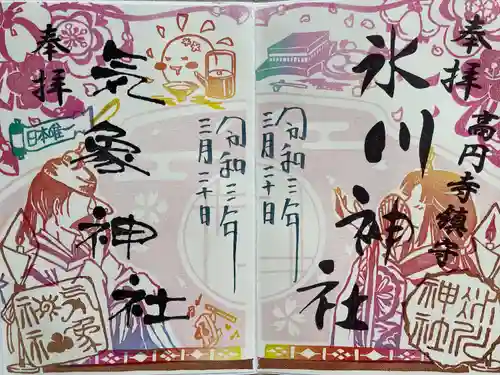 奉拝
高円寺鎮守
氷川神社
令和三年
三月二十日
氷川神社
令和三年
三月二十日
気象神社
奉拝
日本唯一
気象神社